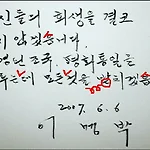 신들의 희생을 결코
지 않겠읍니다.
영된 조국, 평화통일을
루는데 모든것을 받치겠읍
2007. 6. 6
이 명 박